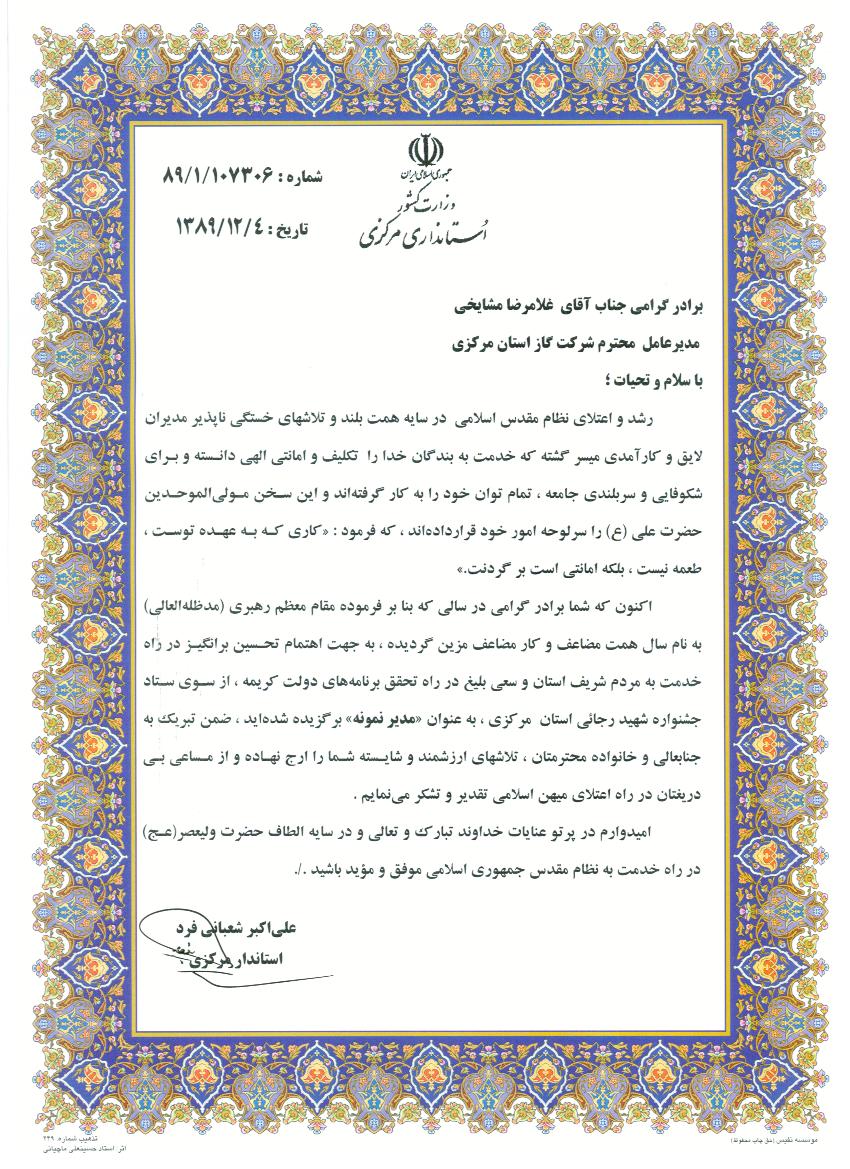 جمهوری اسلامی ایران
وزارت کشور
استانداری مرکزی
شماره : ۸۹/۱/۱۰۷۳۰۶
تاریخ : ۱۳۸۹/۱۲/۴
برادر گرامی جناب آقای غلامرضا مشایخی
مدیرعامل محترم شرکت گاز استان مرکزی
با سلام و تحیات ؛
رشد و اعتلای نظام مقدس اسلامی در سایه همت بلند و تلاشهای خستگی ناپذیر مدیران
لایق و کارآمدی میسر گشته که خدمت به بندگان خدا را تکلیف و امانتی الهی دانسته و برای
شکوفایی و سربلندی جامعه ، تمام توان خود را به کار گرفته‌اند و این سخن مولی‌الموحدین
حضرت علی (ع) را سرلوحه امور خود قرارداده‌اند ، که فرمود : «کاری که به عهده توست ،
طعمه نیست ، بلکه امانتی است بر گردنت.»
اکنون که شما برادر گرامی در سالی که بنا بر فرموده مقام معظم رهبری (مدظله‌العالی)
به نام سال همت مضاعف و کار مضاعف مزین گردیده ، به جهت اهتمام تحسین برانگیز در راه
خدمت به مردم شریف استان و سعی بلیغ در راه تحقق برنامه‌های دولت کریمه ، از سوی ستاد
جشنواره شهید رجائی استان مرکزی ، به عنوان «مدیر نمونه» برگزیده شده‌اید ، ضمن تبریک به
جنابعالی و خانواده محترمتان ، تلاشهای ارزشمند و شایسته شما را ارج نهاده و از مساعی بی
دریغتان در راه اعتلای میهن اسلامی تقدیر و تشکر می‌نمایم .
امیدوارم در پرتو عنایات خداوند تبارک و تعالی و در سایه الطاف حضرت ولیعصر(عج)
در راه خدمت به نظام مقدس جمهوری اسلامی موفق و مؤید باشید ./.
علی‌اکبر شعبانی فرد
استاندار مرکزی
موسسه نفیس (حق چاپ محفوظ)
تذهیب شماره: ۲۴۹
اثر: استاد حسینعلی ماچیانی